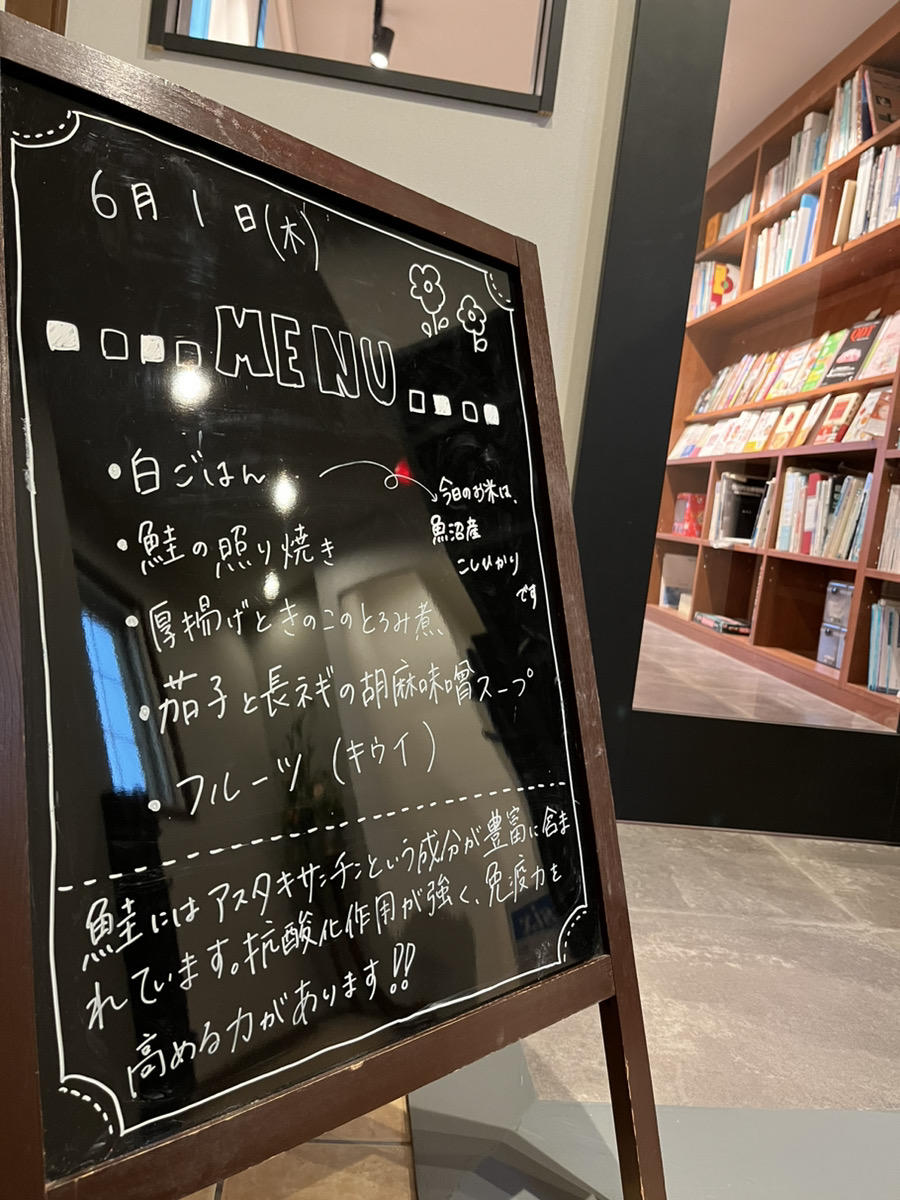 6月1日(木)
MENU
・白ごはん
今日のお米は、
魚沼産
こしひかり
です
・鮭の照り焼き
・厚揚げときのこのとろみ煮
・茄子と長ネギの胡麻味噌スープ
・フルーツ(キウイ)
鮭にはアスタキサンチンという成分が豊富に含ま
れています。抗酸化作用が強く、免疫力を
高める力があります!!